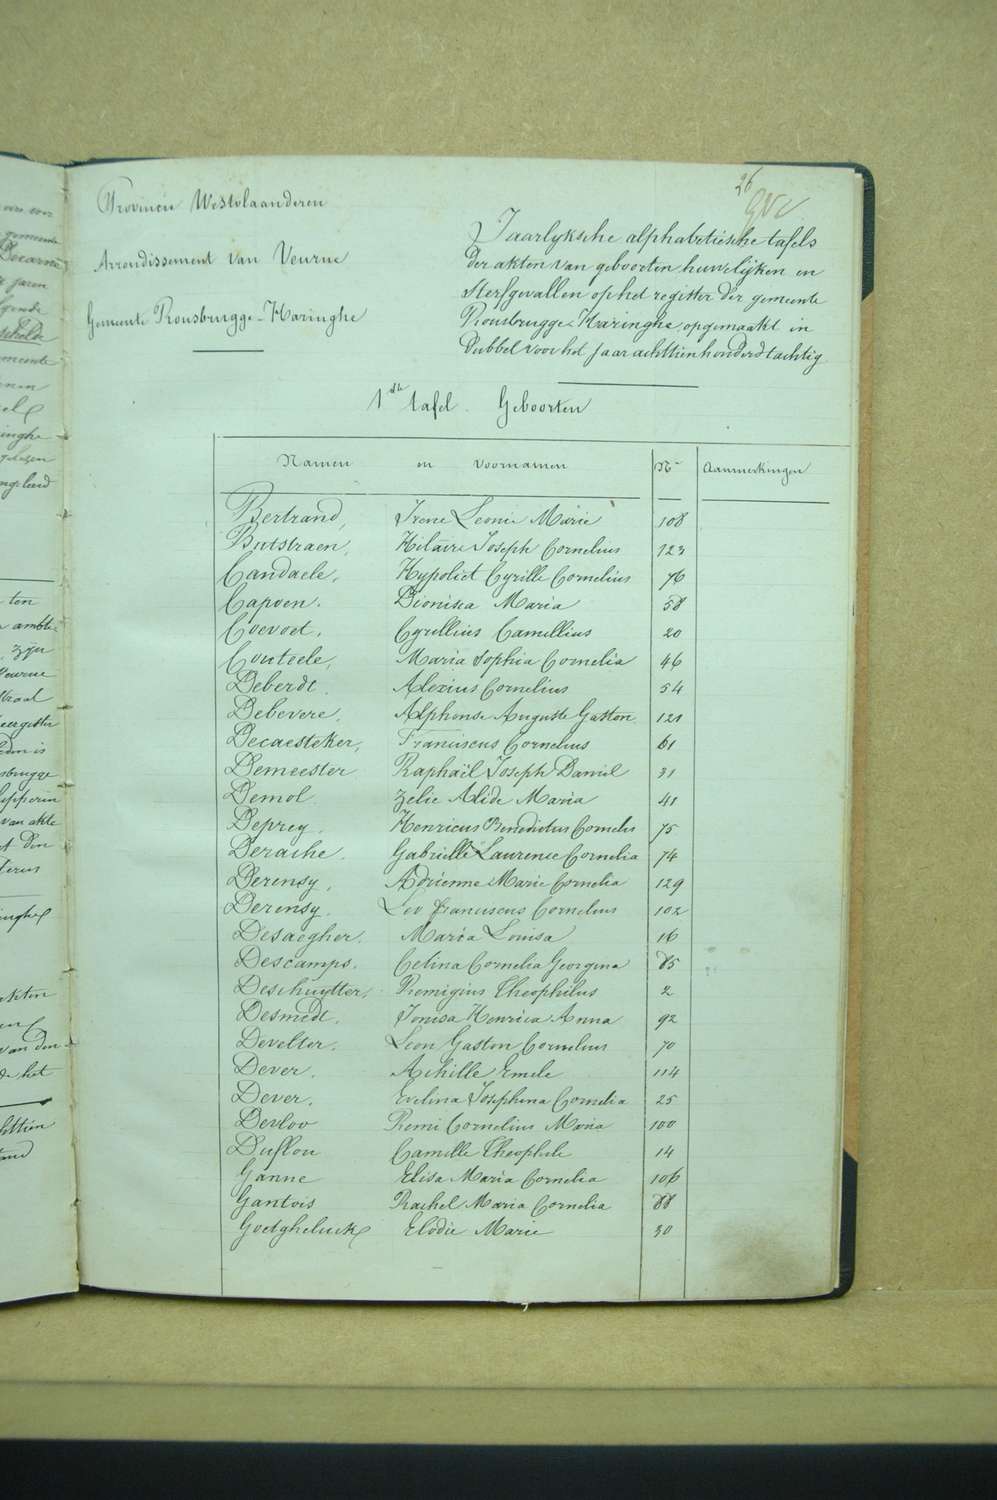 26
Provincie Westvlaanderen
Arrondissement van Veurne
Gemeente Rousbrugge-Haringhe
Jaarlyksche alphabetische tafels
der akten van geboorten huwelijken en
Sterfgevallen op het register der gemeente
Rousbrugge-Haringhe, opgemaakt in
dubbel voor het jaar achttienhonderd tachtig
1ste tafel. Geboorten
Namen en voornamen N° Aanmerkingen
Bertrand, Irene Leonie Marie 108
Butstraen, Hilaire Joseph Cornelius 123
Candaele, Hypoliet Cyrille Cornelius 76
Capoen. Dionisia Maria 58
Coevoet, Cyrillius Camillius 20
Couteele, Maria Sophia Cornelia 46
Deberdt. Alexius Cornelius 54
Debevere. Alphonse Auguste Gaston 121
Decaesteker, Franciscus Cornelius 61
Demeester Raphaël Joseph Daniel 31
Demol Zelie Alide Maria 41
Deprey. Henricus Benedictus Cornelis 75
Derache. Gabrielle Laurence Cornelia 74
Derensy, Adrienne Marie Cornelia 129
Derensy. Leo Franciscus Cornelius 102
Desaegher. Maria Louisa 16
Descamps. Celina Cornelia Georgina 85
Deschuytter, Remigius Theophilus 2
Desmedt. Louisa Henrica Anna 92
Develter. Leon Gaston Cornelius 70
Dever. Achille Emele 114
Dever. Evelina Josephina Cornelia 25
Devloo Remi Cornelius Maria 100
Duflou Camille Theophile 14
Ganne Elisa Maria Cornelia 106
Gantois Rachel Maria Cornelia 88
Goetgheluck Elodie Marie 30